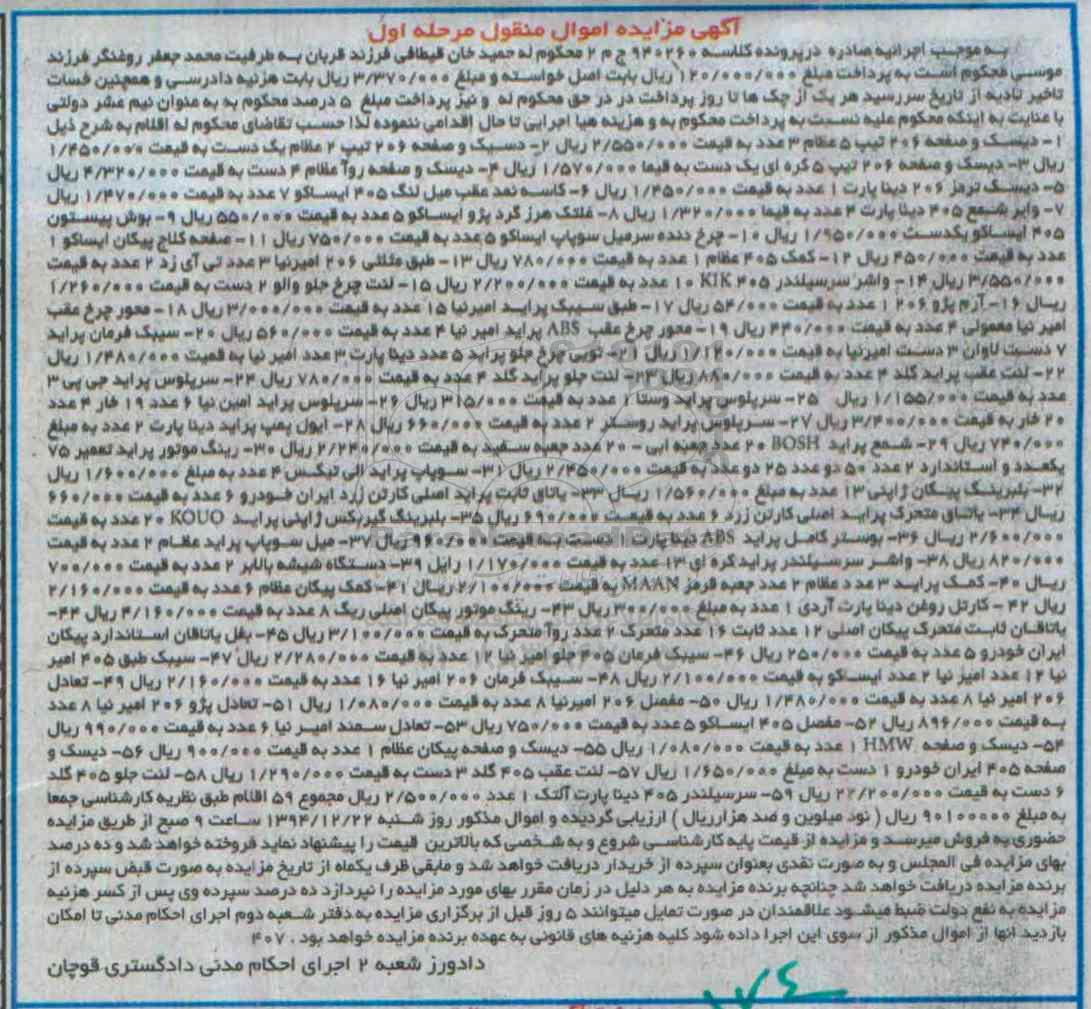 آگهی مزایده اموال منقول مرحله اول
به موجب اجرائیه صادره درپرونده کلاسه ۹۴۰۲۶۰ ج م ۲ محکوم له حمید خان قیطاقی فرزند قربان به طرفیت محمد جعفر روغنگر فرزند
موسی محکوم است به پرداخت مبلغ ۱۲۰/۰۰۰/۰۰۰ ریال بابت اصل خواسته و مبلغ ۳/۳۷۰/۰۰۰ ریال بابت هزنیه دادرسی و همچنین خسات
تاخیر تادیه از تاریخ سررسید هر یک از چک ها تا روز پرداخت در در حق محکوم له و نیز پرداخت مبلغ ۵ درصد محکوم به به عنوان نیم عشر دولتی
با عنایت به اینکه محکوم علیه نسبت به پرداخت محکوم به و هزینه هیا اجرایی تا حال اقدامی ننموده لذا حسب تقاضای محکوم له اقلام به شرح ذیل
۱- دیسک و صفحه ۲۰۶ تیپ ۵ عظام ۳ عدد به قیمت ۲/۵۵۰/۰۰۰ ریال ۲- دسیک و صفحه ۲۰۶ تیپ ۲ عظام یک دست به قیمت ۱/۴۵۰/۰۰۰
ریال ۳- دیسک و صفحه ۲۰۶ تیپ ۵ کره ای یک دست به قیما ۱/۵۷۰/۰۰۰ ریال ۴- دیسک و صفحه روآ عظام ۴ دست به قیمت ۴/۳۲۰/۰۰۰ ریال
۵- دیسک ترمز ۲۰۶ دینا پارت ۱ عدد به قیمت ۱/۴۵۰/۰۰۰ ریال ۶- کاسه نمد عقب میل لنگ ۴۰۵ ایساکو ۷ عدد به قیمت ۱/۴۷۰/۰۰۰ ریال
۷- وایر شمع ۴۰۵ دینا پارت ۴ عدد به قیما ۱/۳۲۰/۰۰۰ ریال ۸- غلتک هرز گرد پژو ایساکو ۵ عدد به قیمت ۵۵۰/۰۰۰ ریال ۹- بوش پیستون
۴۰۵ ایساکو یکدست ۱/۹۵۰/۰۰۰ ریال ۱۰- چرخ دنده سرمیل سوپاپ ایساکو ۵ عدد به قیمت ۷۵۰/۰۰۰ ریال ۱۱- صفحه کلاج پیکان ایساکو ۱
عدد به قیمت ۴۵۰/۰۰۰ ریال ۱۲- کمک ۴۰۵ عظام ۱ عدد به قیمت ۷۸۰/۰۰۰ ریال ۱۳- طبق مثلثی ۲۰۶ امیرنیا ۳ عدد تی آی زد ۲ عدد به قیمت
۳/۵۵۰/۰۰۰ ریال ۱۴- واشر سرسیلندر ۴۰۵ KIK ۱۰ عدد به قیمت ۲/۲۰۰/۰۰۰ ریال ۱۵- لنت چرخ جلو والو ۲ دست به قیمت ۱/۲۶۰/۰۰۰
ریال ۱۶- آرم پژو ۲۰۶ ۱ عدد به قیمت ۵۴/۰۰۰ ریال ۱۷- طبق سیبک پراید امیرنیا ۱۵ عدد به قیمت ۳/۰۰۰/۰۰۰ ریال ۱۸- محور چرخ عقب
امیر نیا معمولی ۴ عدد به قیمت ۴۴۰/۰۰۰ ریال ۱۹- محور چرخ عقب ABS پراید امیر نیا ۴ عدد به قیمت ۵۶۰/۰۰۰ ریال ۲۰- سیبک فرمان پراید
۷ دست ناوان ۳ دست امیرنیا به قیمت ۱/۱۲۰/۰۰۰ ریال ۲۱- توپی چرخ جلو پراید ۵ عدد دینا پارت ۳ عدد امیر نیا به قمیت ۱/۴۸۰/۰۰۰ ریال
۲۲- لنت عقب پراید گلد ۴ عدد به قیمت ۸۸۰/۰۰۰ ریال ۲۳- لنت جلو پراید گلد ۴ عدد به قیمت ۷۸۰/۰۰۰ ریال ۲۴- سرپلوس پراید جی پی ۳
عدد به قیمت ۱/۱۵۵/۰۰۰ ریال ۲۵- سرپلوس پراید وستا ۱ عدد به قیمت ۳۱۵/۰۰۰ ریال ۲۶- سرپلوس پراید امین نیا ۶ عدد ۱۹ خار ۴ عدد
۲۰ خار به قیمت ۳/۴۰۰/۰۰۰ ریال ۲۷- سرپلوس پراید روستر ۲ عدد به قیمت ۶۶۰/۰۰۰ ریال ۲۸- ایول پمپ پراید دینا پارت ۲ عدد به مبلغ
۷۴۰/۰۰۰ ریال ۲۹- شمع پراید BOSH ۲۰ عدد جعبه ابی - ۲۰ عدد جعبه سفید به قیمت ۲/۲۴۰/۰۰۰ ریال ۳۰- رینگ موتور پراید تعمیر ۷۵
یکعدد و استاندارد ۲ عدد ۵۰ دو عدد ۲۵ دو عدد به قیمت ۲/۴۵۰/۰۰۰ ریال ۳۱- سوپاپ پراید الی تیکس ۴ عدد به مبلغ ۱/۶۰۰/۰۰۰ ریال
۳۲- بلبرینگ پیکان ژاپنی ۱۳ عدد به مبلغ ۱/۵۶۰/۰۰۰ ریال ۳۳- یاتاق ثابت پراید اصلی کارتن زرد ایران خودرو ۶ عدد به قیمت ۶۶۰/۰۰۰
ریال ۳۴- یاتاق متحرک پراید اصلی کارتن زرد ۶ عدد به قیمت ۶۹۰/۰۰۰ ریال ۳۵- بلبرینگ گیربکس ژاپنی پراید KOUO ۲۰ عدد به قیمت
۲/۶۰۰/۰۰۰ ریال ۳۶- بوستر کامل پراید ABS دینا پارت ۱ دست به قیمت ۹۶۰/۰۰۰ ریال ۳۷- میل سوپاپ پراید عظام ۲ عدد به قیمت
۸۲۰/۰۰۰ ریال ۳۸- واشر سرسیلندر پراید کره ای ۱۳ عدد به قیمت ۱/۱۷۰/۰۰۰ رایل ۳۹- دستگاه شیشه بالابر ۲ عدد به قیمت ۷۰۰/۰۰۰
ریال ۴۰- کمک پراید ۳ عدد عظام ۲ عدد جعبه قرمز MAAN به قیمت ۲/۱۰۰/۰۰۰ ریال ۴۱- کمک پیکان عظام ۶ عدد به قیمت ۲/۱۶۰/۰۰۰
ریال ۴۲ - کارتل روغن دینا پارت آردی ۱ عدد به مبلغ ۳۰۰/۰۰۰ ریال ۴۳- رینگ موتور پیکان اصلی ریک ۸ عدد به قیمت ۴/۱۶۰/۰۰۰ ریال ۴۴-
یاتاقان ثابت متحرک پیکان اصلی ۱۲ عدد ثابت ۱۶ عدد متحرک ۲ عدد روآ متحرک به قیمت ۳/۱۰۰/۰۰۰ ریال ۴۵- بغل یاتاقان استاندارد پیکان
ایران خودرو ۵ عدد به قیمت ۲۵۰/۰۰۰ ریال ۴۶- سیبک فرمان ۴۰۵ جلو امیر نیا ۱۲ عدد به قیمت ۲/۲۸۰/۰۰۰ ریال ۴۷- سیبک طبق ۴۰۵ امیر
نیا ۱۲ عدد امیز نیا ۲ عدد ایساکو به قیمت ۲/۱۰۰/۰۰۰ ریال ۴۸- سیبک فرمان ۲۰۶ امیر نیا ۱۶ عدد به قیمت ۲/۱۶۰/۰۰۰ ریال ۴۹- تعادل
۲۰۶ امیر نیا ۸ عدد به قیمت ۱/۴۸۰/۰۰۰ ریال ۵۰- مفصل ۲۰۶ امیرنیا ۸ عدد به قیمت ۱/۰۸۰/۰۰۰ ریال ۵۱- تعادل پژو ۲۰۶ امیر نیا ۸ عدد
به قیمت ۸۹۶/۰۰۰ ریال ۵۲- مفصل ۴۰۵ ایساکو ۵ عدد به قیمت ۷۵۰/۰۰۰ ریال ۵۳- تعادل سمند امیر نیا ۶ عدد به قیمت ۹۹۰/۰۰۰ ریال
۵۴- دیسک و صفحه HMW ۱ عدد به قیمت ۱/۰۸۰/۰۰۰ ریال ۵۵- دیسک و صفحه پیکان عظام ۱ عدد به قیمت ۹۰۰/۰۰۰ ریال ۵۶- دیسک و
صفحه ۴۰۵ ایران خودرو ۱ دست به مبلغ ۱/۶۵۰/۰۰۰ ریال ۵۷- لنت عقب ۴۰۵ گلد ۳ دست به قیمت ۱/۲۹۰/۰۰۰ ریال ۵۸- لنت جلو ۴۰۵ گلد
۶ دست به قیمت ۲۲/۲۰۰/۰۰۰ ریال ۵۹- سرسیلندر ۴۰۵ دینا پارت آلتک ۱ عدد ۲/۵۰۰/۰۰۰ ریال مجموع ۵۹ اقلام طبق نظریه کارشناسی جمعا
به مبلغ ۹۰۱۰۰۰۰۰ ریال ( نود میلوین و صد هزارریال ) ارزیابی گردیده و اموال مذکور روز شنبه ۱۳۹۴/۱۲/۲۲ ساعت ۹ صبح از طریق مزایده
حضوری به فروش میرسد و مزایده از قیمت پایه کارشناسی شروع و به شخصی که بالاترین قیمت را پیشنهاد نماید فروخته خواهد شد و ده درصد
بهای مزایده فی المجلس و به صورت نقدی بعنوان سپرده از خریدار دریافت خواهد شد و مابقی ظرف یکماه از تاریخ مزایده به صورت قبض سپرده از
برنده مزایده دریافت خواهد شد چنانچه برنده مزایده به هر دلیل در زمان مقرر بهای مورد مزایده را نپردازد ده درصد سپرده وی پس از کسر هزنیه
مزایده به نفع دولت ضبط میشود علاقمندان در صورت تمایل میتوانند ۵ روز قبل از برگزاری مزایده به دفتر شعبه دوم اجرای احکام مدنی تا امکان
بازدید آنها از اموال مذکور از سوی این اجرا داده شود کلیه هزنیه های قانونی به عهده برنده مزایده خواهد بود . ۴۰۷
دادورز شعبه ۲ اجرای احکام مدنی دادگستری قوچان
۱۷٤